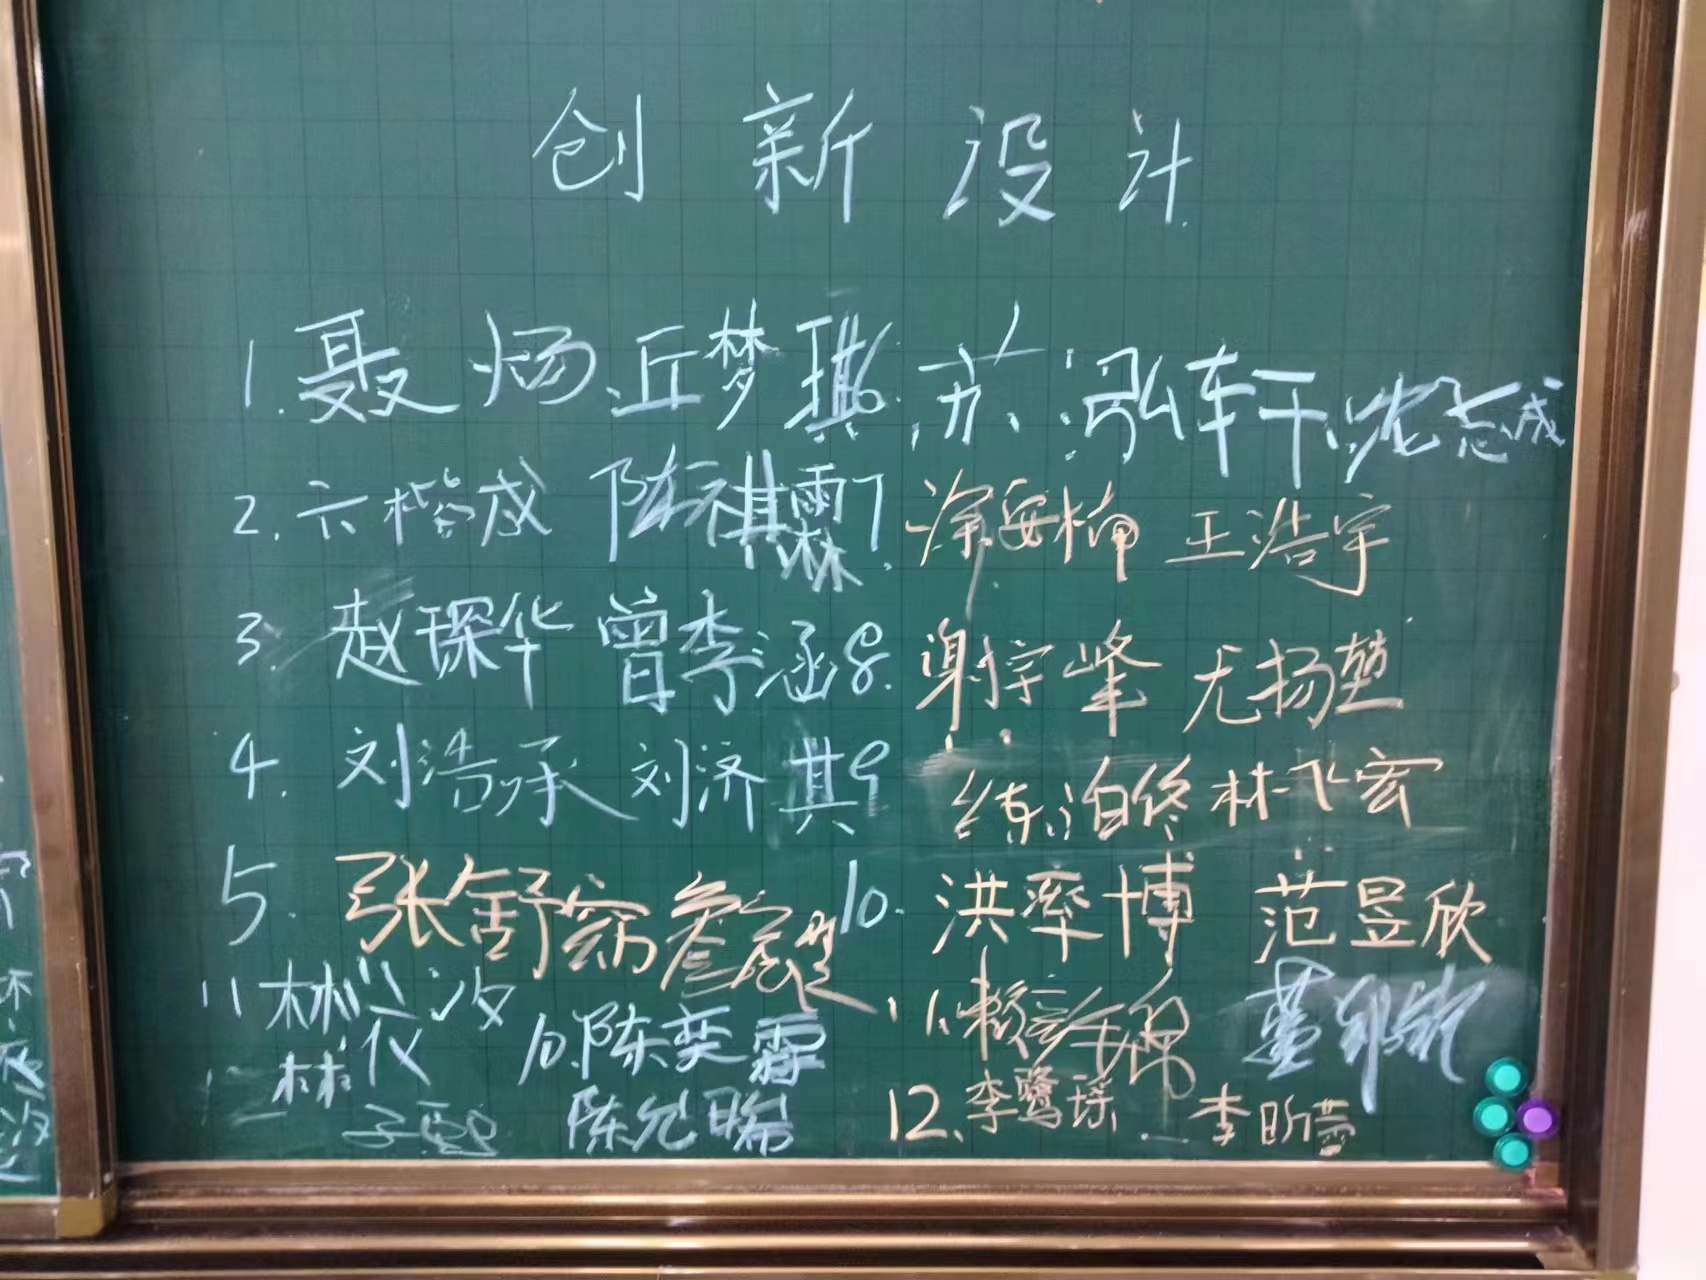 创新设计
1. 聂炀 丘梦琪 6. 苏泓轩 沈志成
2. 六楷成 陈祺霖 7. 涂安 王浩宇
3. 赵琛华 曾李涵 8. 谢宇峰 尤扬堃
4. 刘浩承 刘济其 9 练泊终 林飞宏
5. 张舒窈 10. 洪率博 范昱欣
11 林 汐 10. 陈奕霖 11. 赖
林仪 陈允曦 12. 李鹭瑶 李昕芸